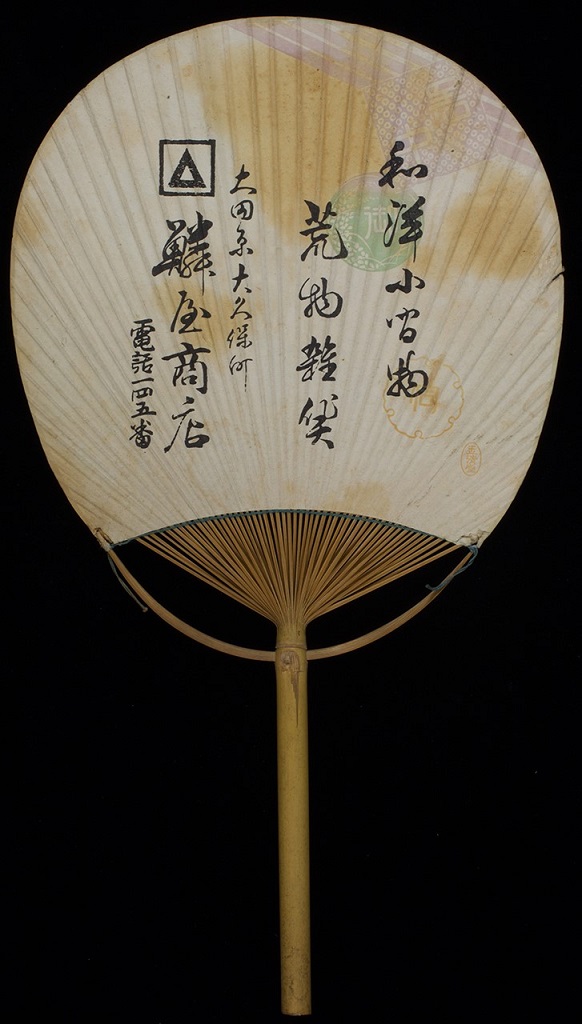 和洋小間物
荒物雑貨
大田原大久保町
鱗屋商店
電話一四五番
御